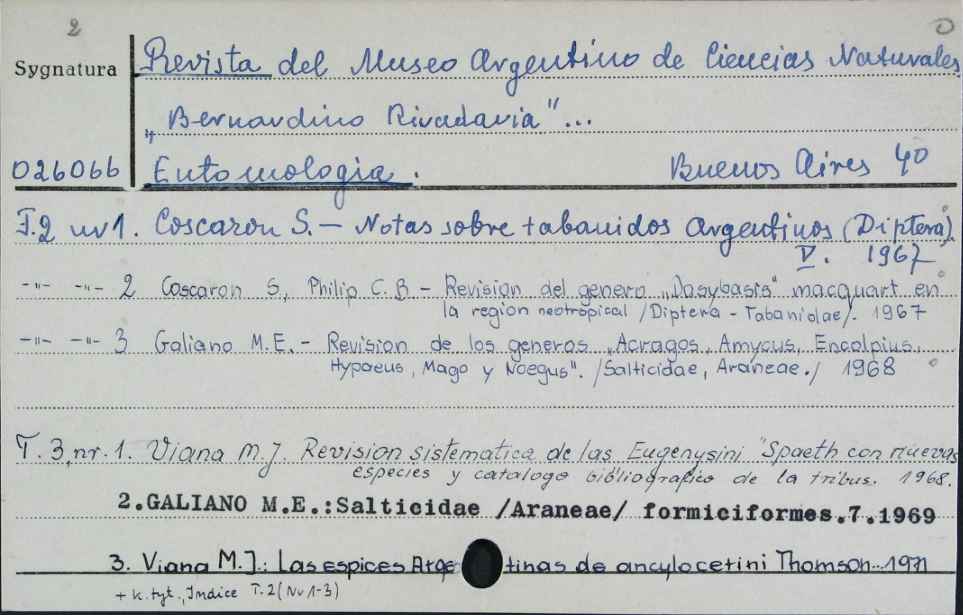 2
Sygnatura
Revista del Museo Argentino de Ciencias Naturales
„Bernardino Rivadavia"...
026066 Entomologia. Buenos Aires 40
T.2 nr 1. Coscaron S. – Notas sobre tabanidos argentinos (Diptera).
V. 1967
-"- -"- 2 Coscaron S, Philip C.B – Revision del genero „Dasybasis" macquart en
la region neotropical /Diptera - Tabaniolae/. 1967
-"- -"- 3 Galiano M.E. - Revision de los generos „Acragos, Amycus, Encolpius,
Hypaeus, Mago y Noegus". /Salticidae, Araneae./ 1968
T. 3, nr. 1. Viana M.J. Revision sistematica de las Eugenysini "Spaeth con nuevas
especies y catalogo bibliografico de la tribus. 1968.
2.GALIANO M.E.:Salticidae /Araneae/ formiciformes.7.1969
3. Viana M.J.: Las espices Arge tinas de ancylocetini Thomson. 1971
+ k.tyt., Indice T.2 (Nr 1-3)